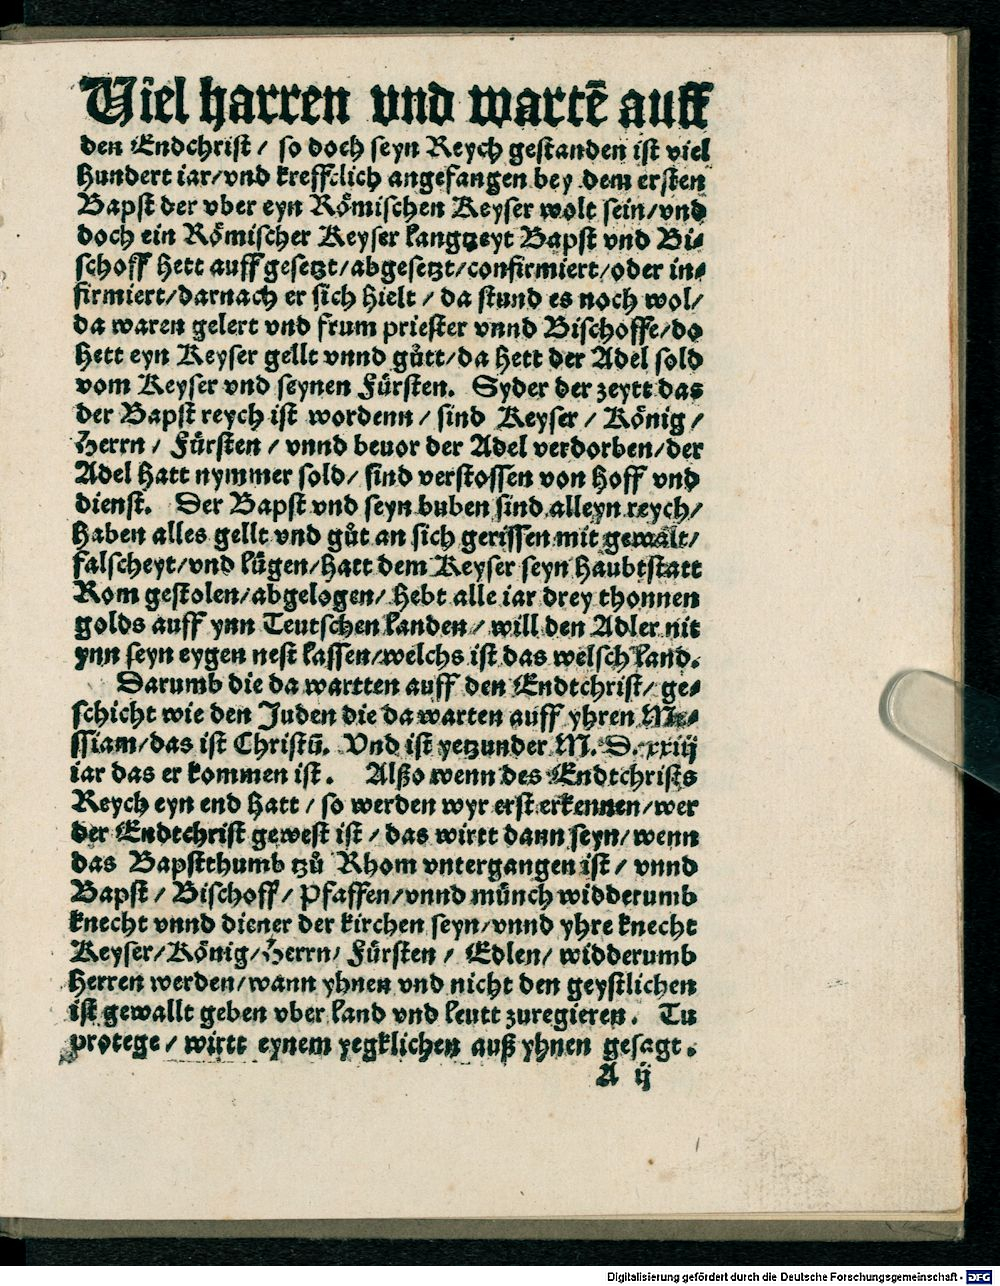 Viel harren vnd wartē auff
den Endchrist / so doch seyn Reych gestanden ist viel
hundert iar/vnd kreffclich angefangen bey dem ersten
Bapst der vber eyn Rômischen Keyser wolt sein/vnd
doch ein Rômischer Keyser langtzeyt Bapst vnd Bi⸗
schoff hett auff gesetzt/abgesetzt/confirmiert/oder in⸗
firmiert/darnach er sich hielt / da stund es noch wol/
da waren gelert vnd frum priester vnnd Bischoffe/do
hett eyn Keyser gellt vnnd gůtt/da hett der Adel sold
vom Keyser vnd seynen Fürsten. Syder der zeytt das
der Bapst reych ist wordenn / sind Keyser / Kônig /
Herrn / Fürsten / vnnd beuor der Adel verdorben/der
Adel hatt nymmer sold/ sind verstossen von hoff vnd
dienst. Der Bapst vnd seyn buben sind alleyn reych/
haben alles gellt vnd gůt an sich gerissen mit gewalt/
falscheyt/vnd lügen/hatt dem Keyser seyn haubtstatt
Rom gestolen/abgelogen/ hebt alle iar drey thonnen
golds auff ynn Teutschen landen/ will den Adler nit
ynn seyn eygen nest lassen/welchs ist das welsch land.
Darumb die da wartten auff den Endtchrist/ ge⸗
schicht wie den Juden die da warten auff yhren Me⸗
ssiam/das ist Christū. Vnd ist yetzunder M. D. xxiij
iar das er kommen ist. Alßo wenn des Endtchrists
Reych eyn end hatt / so werden wyr erst erkennen/wer
der Endtchrist gewest ist / das wirtt dann seyn/ wenn
das Bapstthumb tzů Rhom vntergangen ist/ vnnd
Bapst / Bischoff / Pfaffen/vnnd münch widderumb
knecht vnnd diener der kirchen seyn/vnnd yhre knecht
Keyser/Kônig/Herrn/ Fürsten / Edlen/ widderumb
Herren werden/wann yhnen vnd nicht den geystlichen
ist gewallt geben vber land vnd leutt zuregieren. Tu
protege / wirtt eynem yegklichen auß yhnen gesagt.
A ij
Digitalisierung gefördert durch die Deutsche Forschungsgemeinschaft - DFG